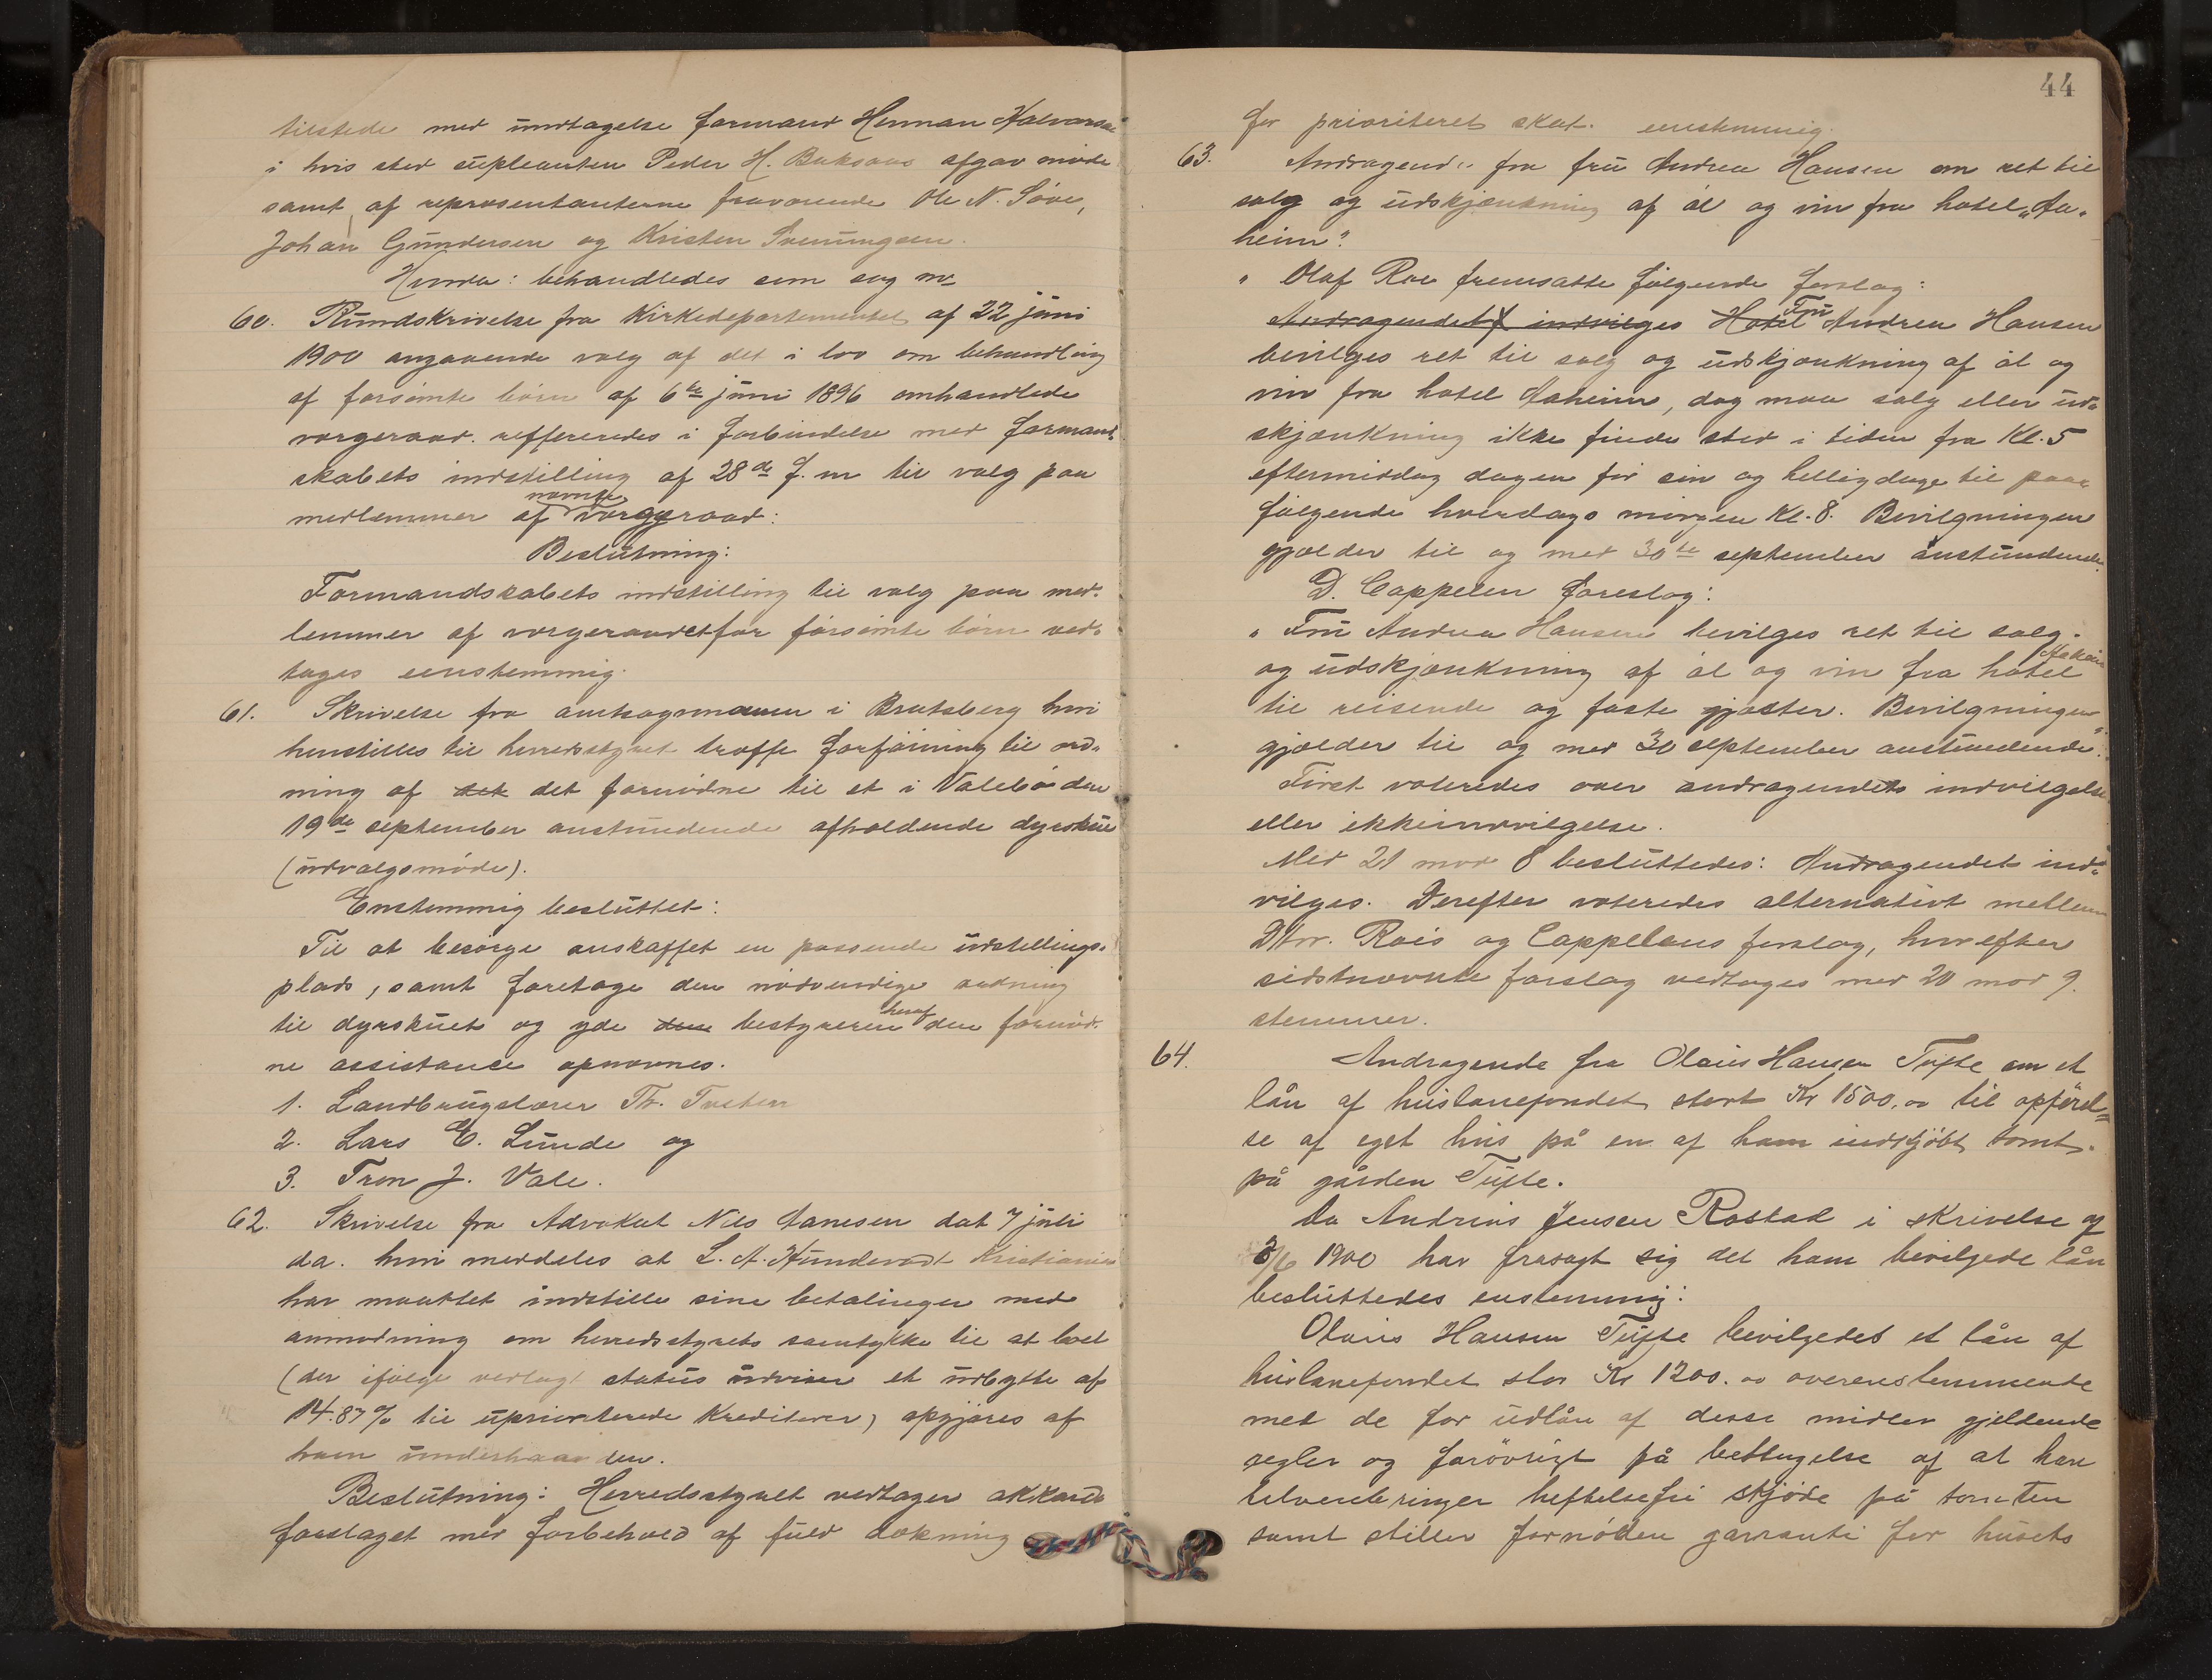 tilstede med undtagelse formand Herman Halvorsen
i hvis sted supleanten Peder H. Buksaas afgav møde
samt af repræsentanterne fraværende Ole N. Søve,
Johan Gundersen og Kristen Svenungsen.
behandledes som sag no
60. Rundskrivelse fra Kirkedepartementet af 22 juni
1900 angaaende valg af det i lov om behandling
af forsømte børn af 6te juni 1896 omhandlede
vargeraad. reffereredes i forbindelse med formand
skabets indstilling af 28de f.m til valg paa
medlemmer af nævnte vergeraad:
Beslutning:
Formandskabets indstilling til valg paa med-
lemmer af vergeraadet for forsømte børn ved-
tages eenstemmig.
61. Skrivelse fra amtsagronomen i Bratsberg hvori
henstilles til herredsstyret træffe forføining til ord-
ning af det det fornødne til et i Valebø den
19de september anstundende afholdende dyrskue
(udvalgsmøde).
Enstemmig besluttet:
Til at besørge anskaffet en passende udstillings-
plads, samt foretage den nødvendige ordning
til dyrskuet og yde den bestyreren heraf den fornød-
ne assistance opnævnes.
1. Landbrugslærer Th. Tveten
2. Lars E. Lunde og
3. Tron J. Vale.
62. Skrivelse fra Advokat Nils Aanesen dat 7 juli
d.a. hvori meddeles at L. A. Kundevat Kristiania
har maattet indstille sine betalinger med
anmodning om herredsstyrets samtykke til at boet
(der ifølge vedlagt status udviser et udbytte af
14.87% til upriorterede Kreditorer) opgjøres af
ham underhaanden.
Beslutning: Herredsstyret vedtager akkords
forslaget med forbehold af fuld dækning
44
for prioriteret skat. eenstemmig.
63. Andragende fra fru Andrea Hansen om ret til
salg og udskjænkning af øl og vin fra hotel „Aa-
heim".
" Olaf Roe fremsatte følgende forslag:
Andragendet indvilges Hotel Fru Andrea Hansen
bevilges ret til salg og udskjænkning af øl og
vin fra hotel Aaheim, dog maa salg eller ud-
skjænkning ikke finde sted i tiden fra Kl. 5
eftermiddag dagen før søn og helligdage til paa
følgende hverdags morgen Kl. 8. Bevilgningen
gjælder til og med 30te september anstundende.
D. Cappelen foreslog:
" Fru Andrea Hansen bevilges ret til salg
og udskjænkning af øl og vin fra hotel Aaheim
til reisende og faste gjæster. Bevilgningen
gjælder til og med 30 september anstundende".
Først voteredes over andragendets indvilgelse
eller ikkeindvilgelse.
Med 21 mod 8 besluttedes: Andragendet ind-
vilges. Derefter voteredes alternativt mellem
D'hrr. Roes og Cappelens forslag, hvorefter
sidstnævnte forslag vedtages med 20 mod 9
stemmer.
64. Andragende fra Olaus Hansen Tufte om et
lån af huslånefondet stort Kr 1500.00 til opførel=
se af eget hus på en af ham indkjøbt tomt
på gården Tufte.
Da Andreas Jensen Rostad i skrivelse af
3/6 1900 har frasagt sig det ham bevilgede lån
besluttedes enstemmig:
Olaus Hansen Tufte bevilgedes et lån af
huslånefondet stor Kr 1200.00 overenstemmende
med de for udlån af desse midler gjeldende
regler og forøvrigt på bettingelse af at han
tilveiebringer heftelsefri skjøde på tomten
samt stiller fornøden garranti for husets